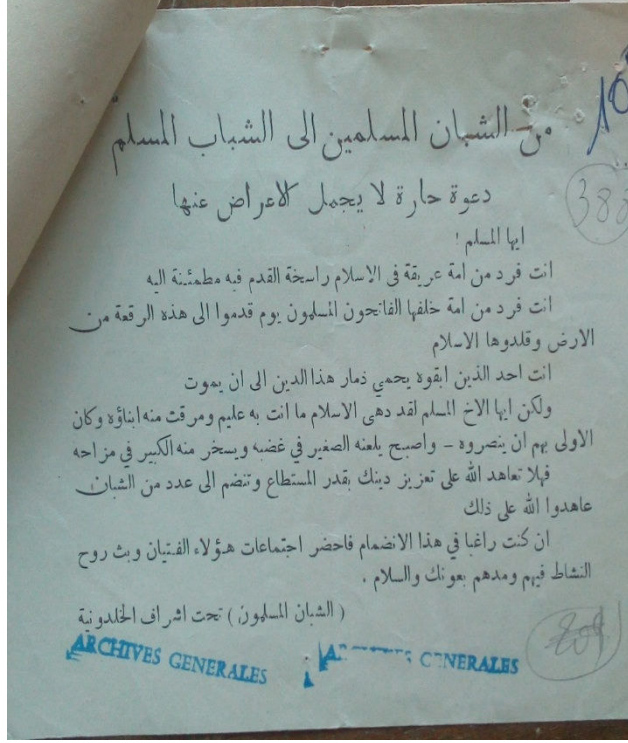 من الشبان المسلمين الى الشباب المسلم
دعوة حارة لا يجمل الاعراض عنها
ايها المسلم !
انت فرد من امة عريقة فى الاسلام راسخة القدم فيه مطمئنة اليه
انت فرد من امة خلفها الفاتحون المسلمون يوم قدموا الى هذه الرقعة من
الارض وقلدوها الاسلام
انت احد الذين ابقوه يحمي ذمار هذا الدين الى ان يموت
ولكن ايها الاخ المسلم لقد دهى الاسلام ما انت به عليم ومرقت منه ابناؤه وكان
الاولى بهم ان ينصروه – واصبح يلعنه الصغير في غضبه ويسخر منه الكبير في مزاحه
فهلا تعاهد الله على تعزيز دينك بقدر المستطاع وتنضم الى عدد من الشبان
عاهدوا الله على ذلك
ان كنت راغبا في هذا الانضمام فاحضر اجتماعات هؤلاء الفتيان وبث روح
النشاط فيهم ومدهم بعونك والسلام .
( الشبان المسلمون ) تحت اشراف الخلدونية
ARCHIVES GENERALES
GENERALES
10
388